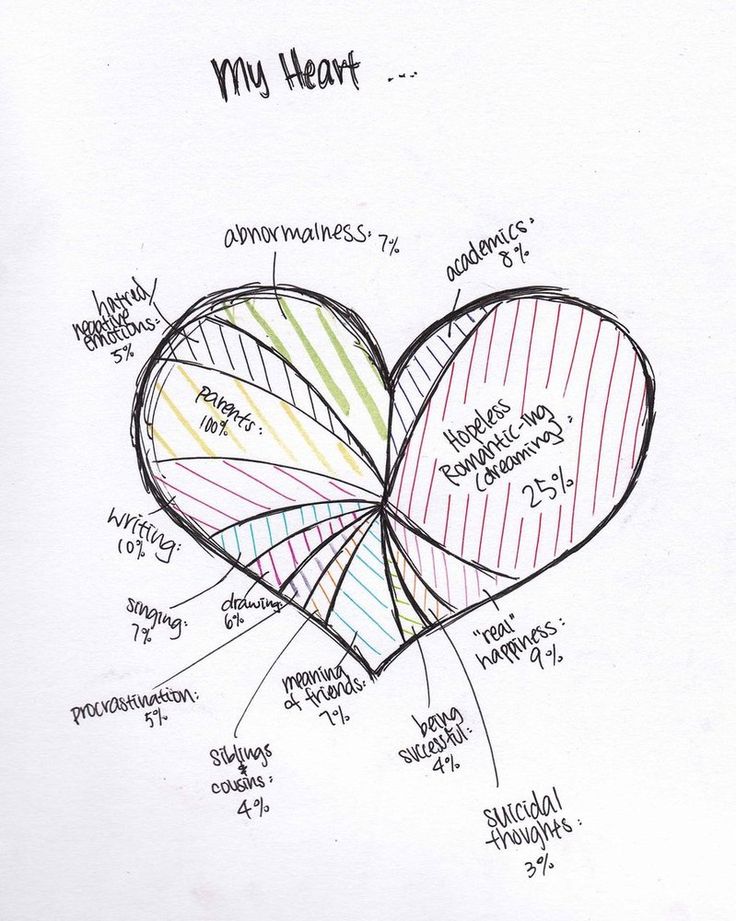 My Heart ...
abnormalness: 7%
academics:
8%
hatred/
negative
emotions:
5%
parents:
100%
Hopeless
Romantic-ing
(dreaming):
25%
writing:
10%
singing:
7%
drawing:
6%
"real"
happiness:
9%
procrastination:
5%
meaning
of friends:
7%
siblings
&
cousins:
4%
being
successful:
4%
suicidal
thoughts:
3%